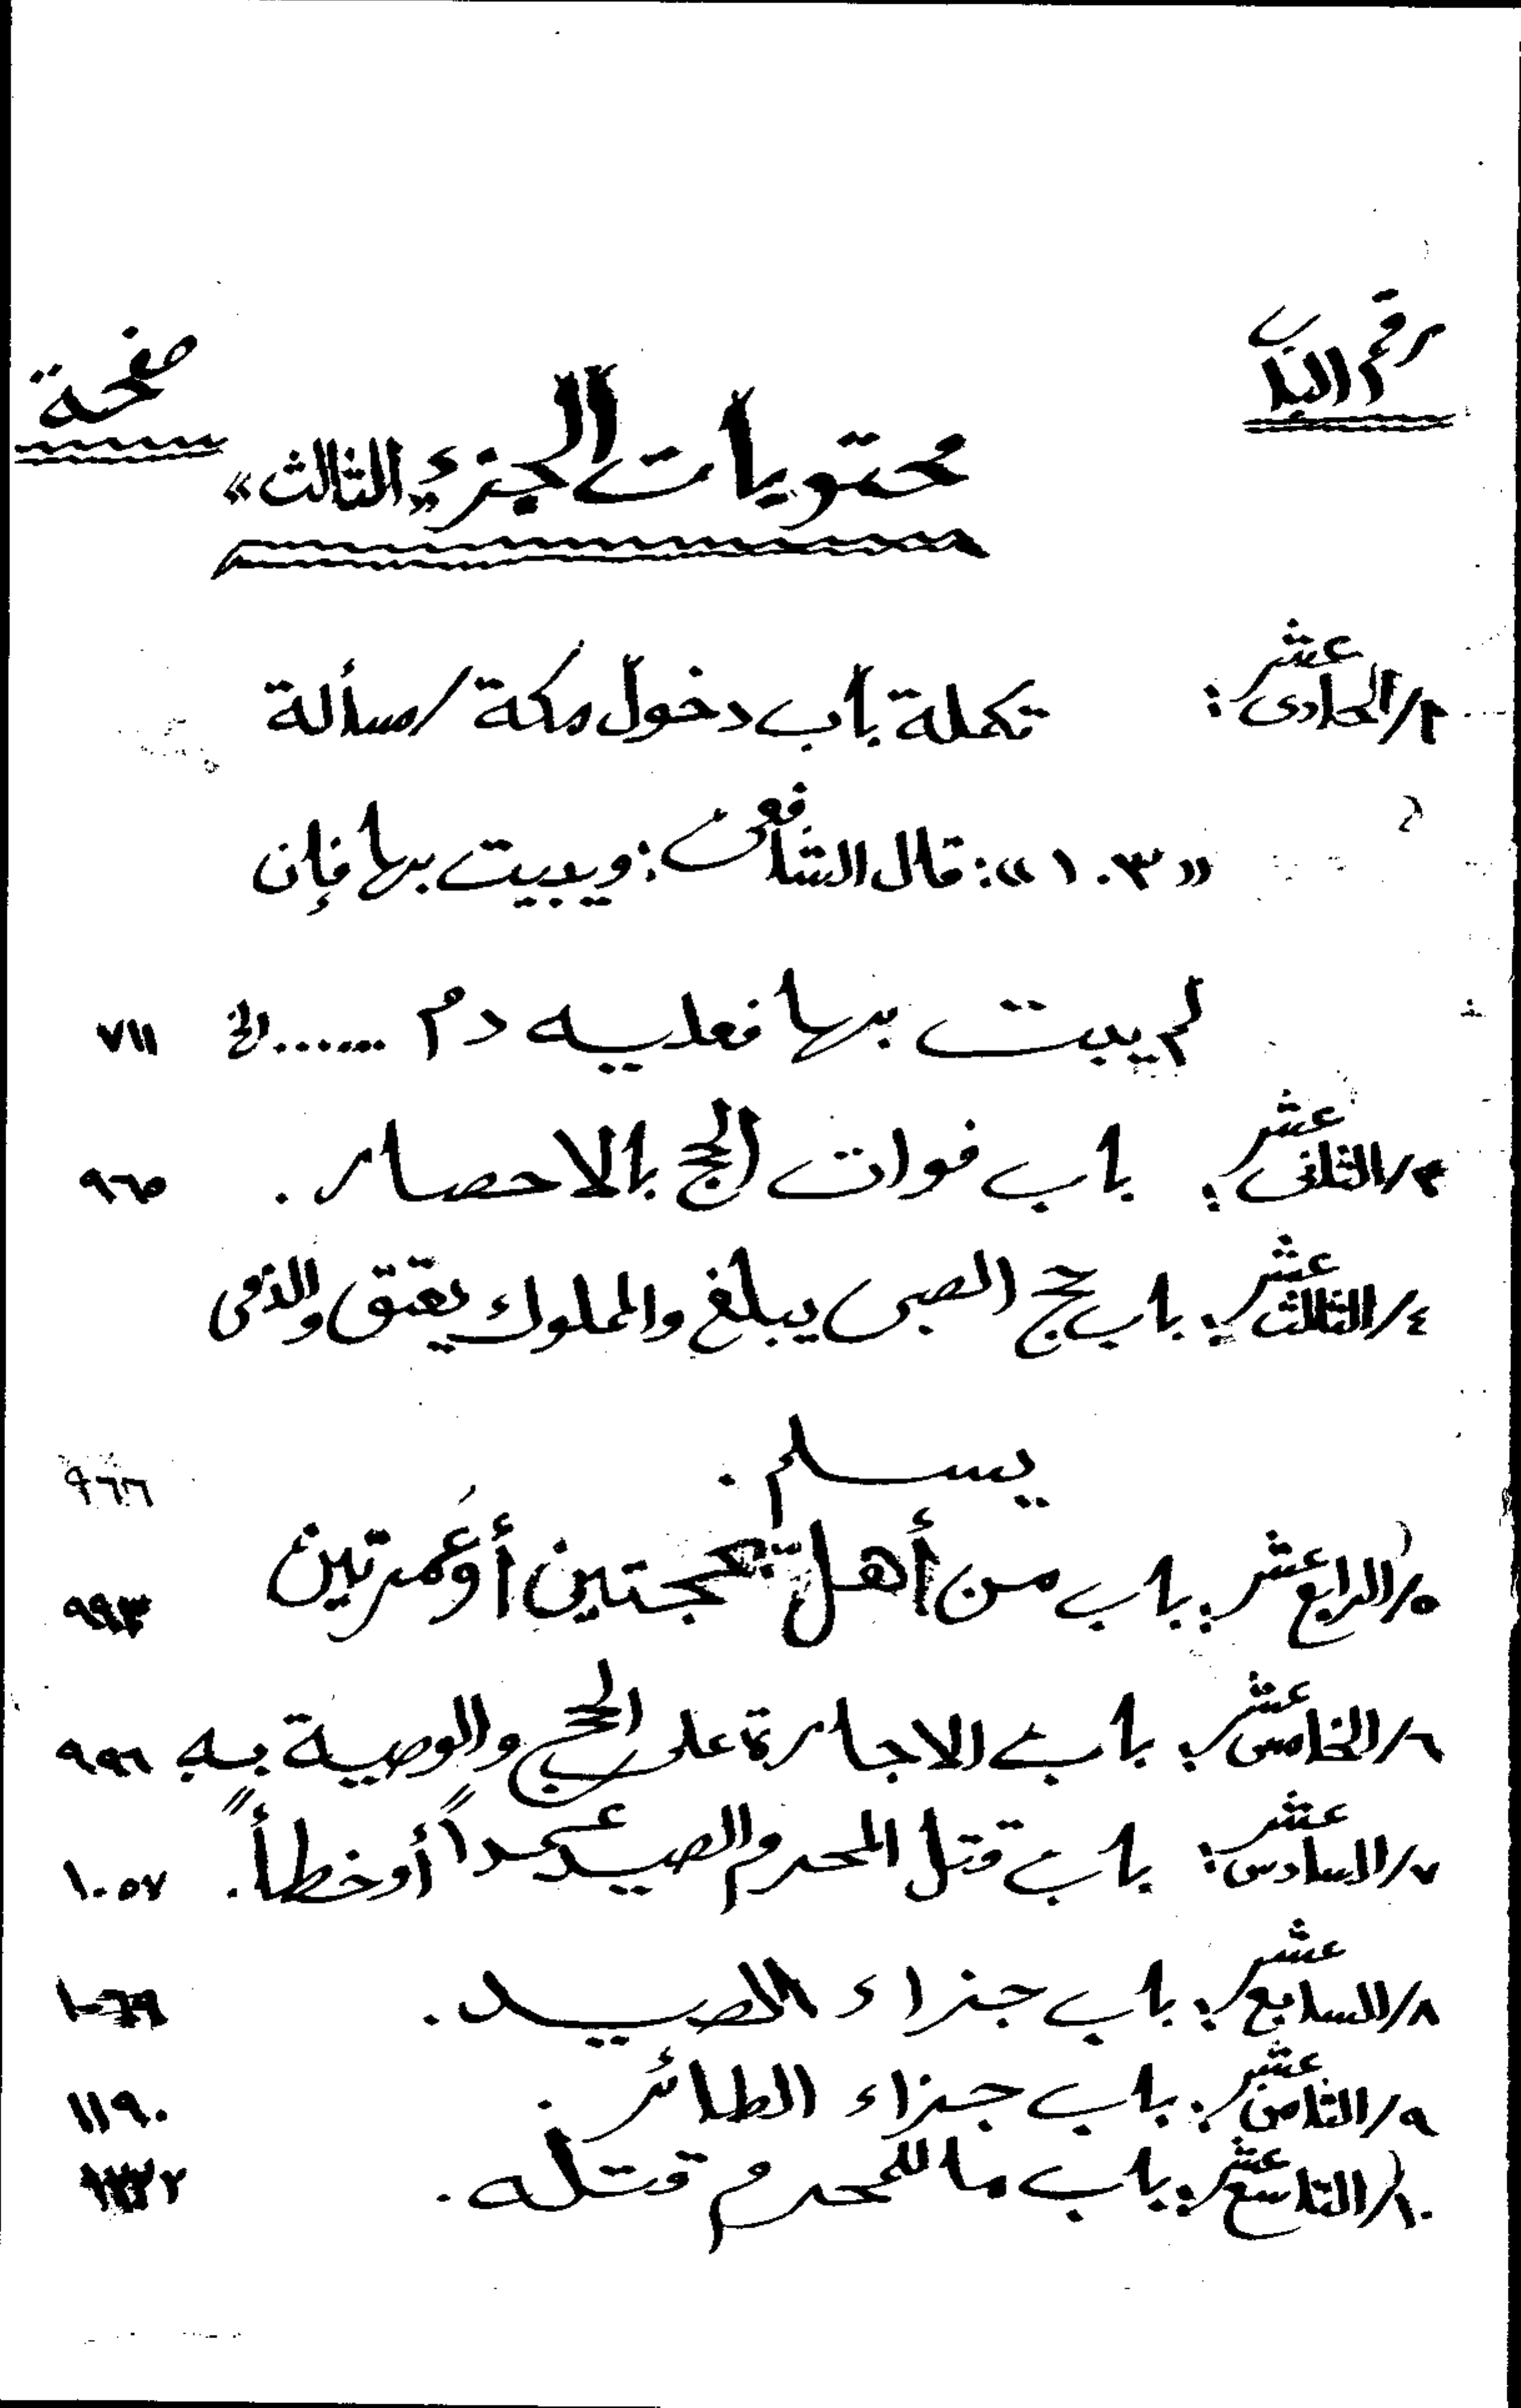 رقم الباب
صفحة
محتويات الجزء «الثالث»
٢/الحادى عشر: تكملة باب دخول مكة/مسألة
«١٠٣»: قال الشافعى: ويبيت بها فإن
لم يبت بها فعليه دم ...... الخ ٧١١
٣/الثانى عشر: باب فوات الحج بالاحصار. ٩٦٥
٤/الثالث عشر: باب حج الصبى يبلغ والمملوك يعتق والذمى
يسلم. ٩٦٦
٥/الرابع عشر: باب من أهلّ بحجتين أو عُمرتين ٩٩٣
٦/الخامس عشر: باب الاجارة على الحج والوصية به ٩٩٦
٧/السادس عشر: باب قتل المحرم الصيد عمداً أو خطأً. ١٠٥٧
٨/السابع عشر: باب جزاء الصيد. ١٠٦٩
٩/الثامن عشر: باب جزاء الطائر. ١١٩٠
١٠/التاسع عشر: باب ما للمحرم قتله.